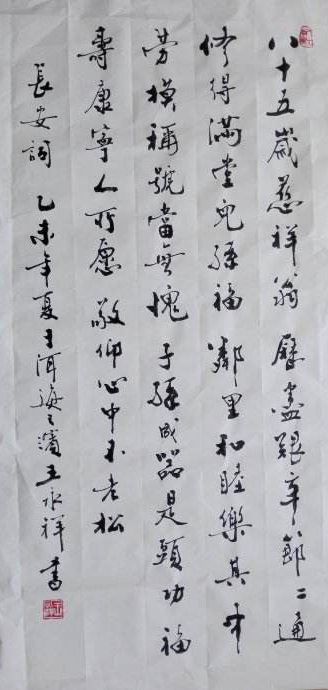 八十五歲慈祥翁 歷盡艱辛節二通
修得滿堂兒孫福 鄰里和睦樂其中
勞模稱號當無愧 子孫成器是頭功 福
壽康寧人所愿 敬仰心中不老松
長安詞 乙未年夏于洱海之濱王永祥書